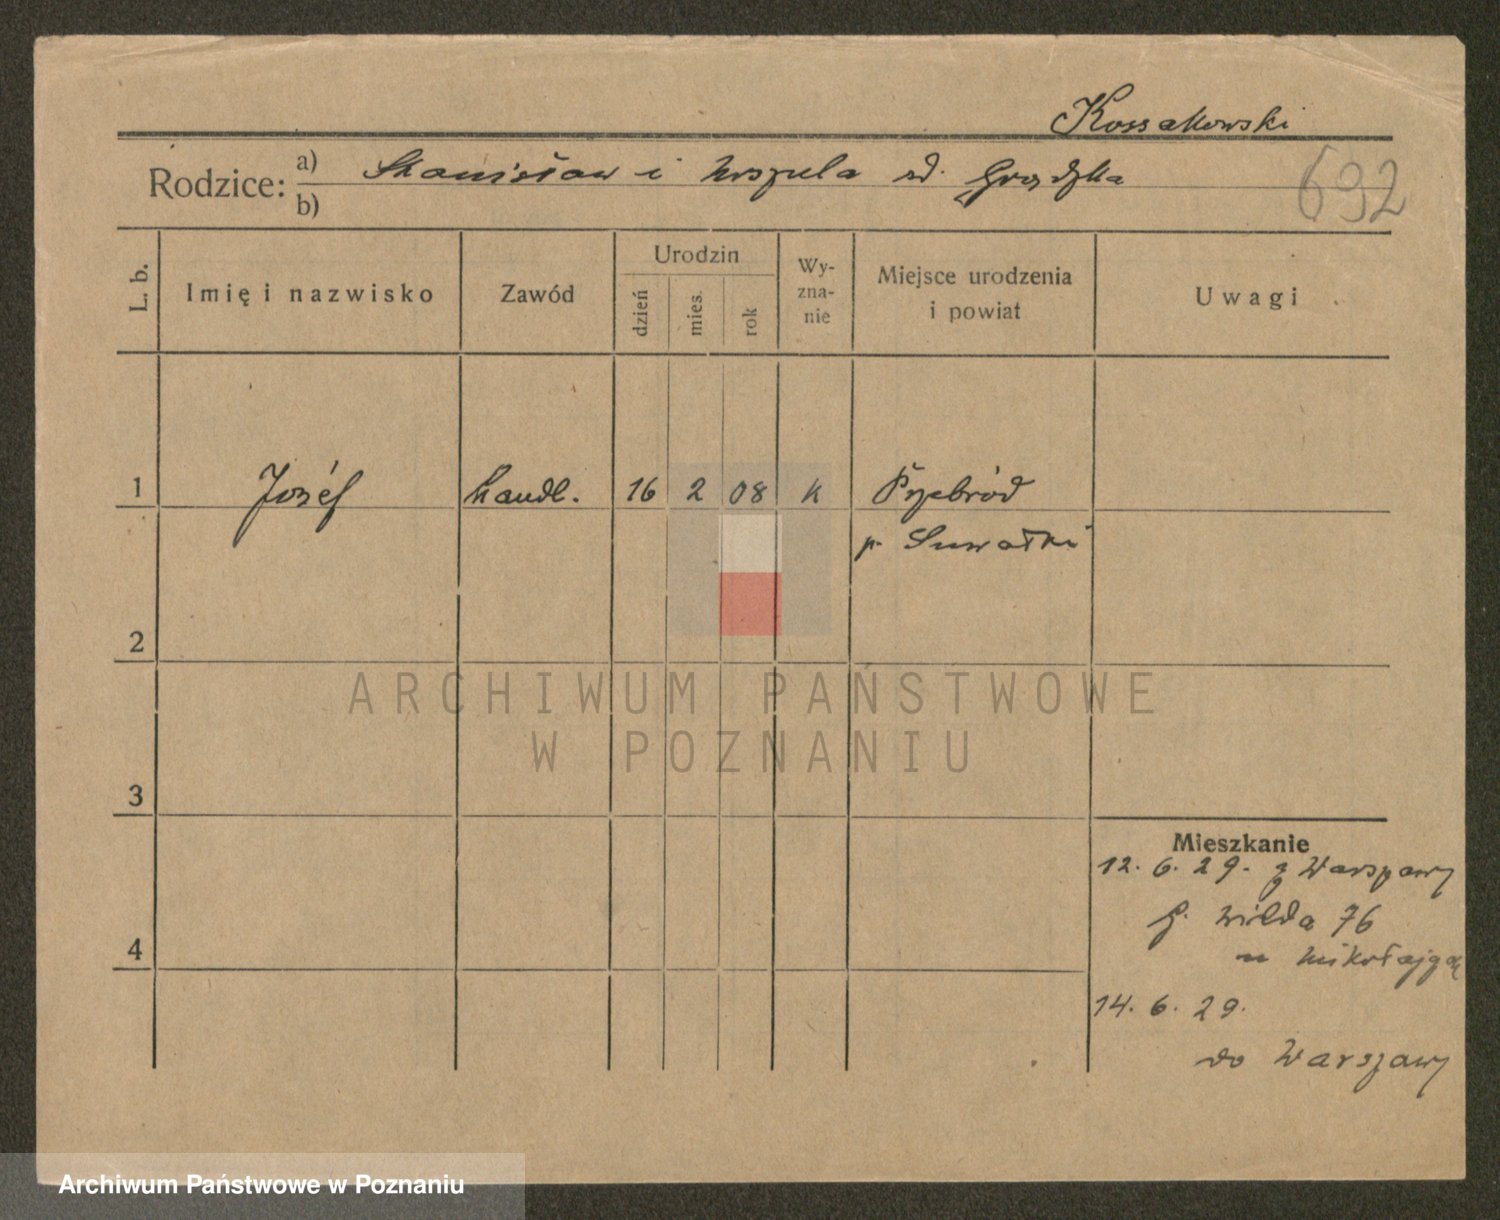 Kossakowski
Rodzice: a) Stanisław i Urszula
b)
692
L. b.
Imię i nazwisko
Zawód
Urodzin
dzień
mies.
rok
Wy-
zna-
nie
Miejsce urodzenia
i powiat
Uwagi
1
Józef
handl.
16
2
08
k
Przebród
p. Suwałki
2
ARCHIWUM PAŃSTWOWE
W POZNANIU
3
Mieszkanie
12. 6. 29. z Warszawy
G. Wilda 76
4
14. 6. 29.
do Warszawy
Archiwum Państwowe w Poznaniu